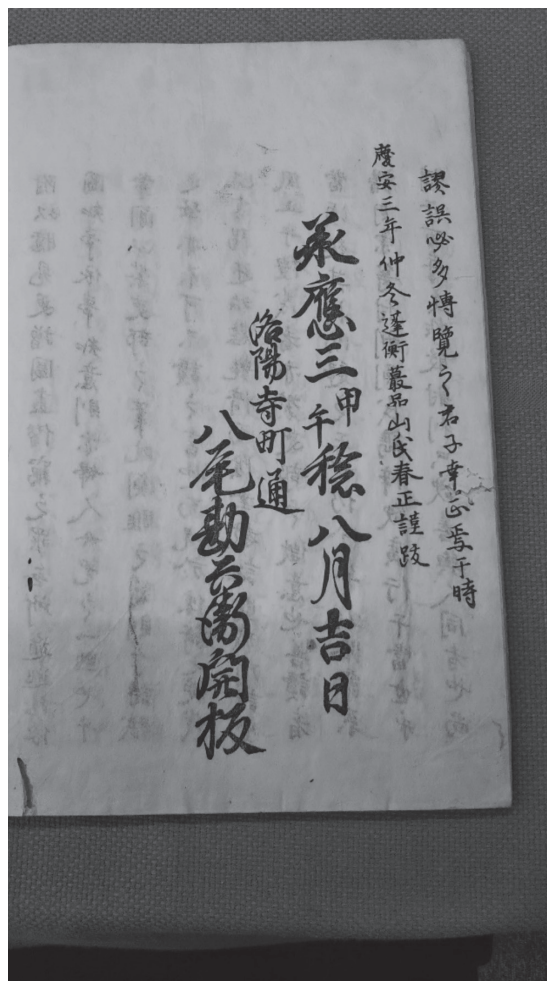 謬誤必多博覽之君子幸正焉于時
慶安三年仲冬蓬衡蕞品山氏春正謹跋
承應三甲午稔八月吉日
洛陽寺町通
八尾勘兵衛開板